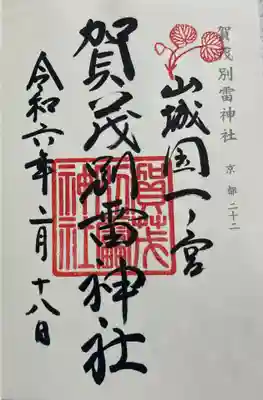 賀茂別雷神社
京都二十二
山城国一ノ宮
賀茂別雷神社
賀茂別雷神社
令和六年二月十八日